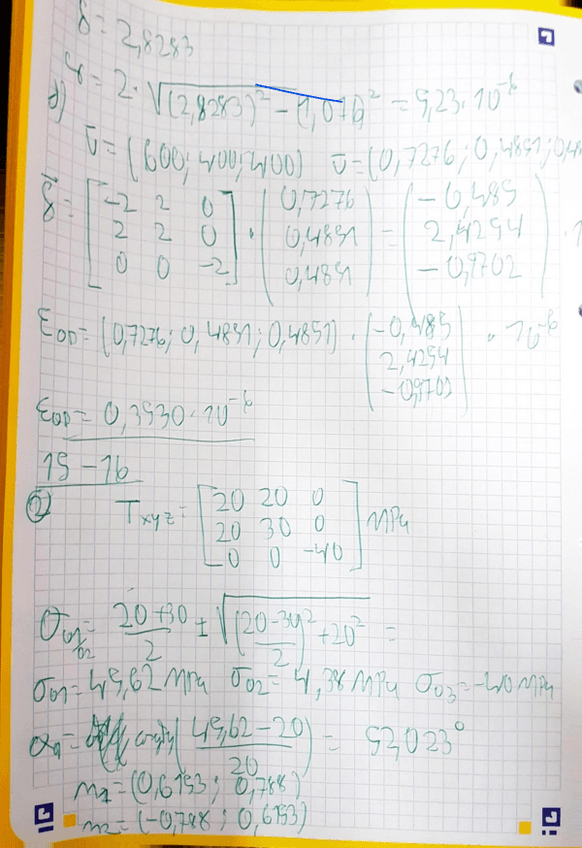 δ = 2,8283
γ = 2 · √((2,8283)² − (1,0716)² = 5,23 · 10⁻⁶
f)
ū = (600; 400; 400) ū = (0,7276; 0,4851; 0,48
δ̄ = [−2 2 0] · (0,7276) = (−0,485)
[2 2 0] (0,4851) (2,4254) · 1
[0 0 −2] (0,4851) (−0,9702)
ε_OD = (0,7276; 0,4851; 0,4851) · (−0,485) · 10⁻⁶
(2,4254)
(−0,9702)
ε_OD = 0,3530 · 10⁻⁶
15 − 16
② T_xyz = [20 20 0] MPa
[20 30 0]
[0 0 −40]
σ_01,02 = (20 + 30)/2 ± √((20 − 30)/2)² + 20² =
σ_01 = 45,62 MPa σ_02 = 4,38 MPa σ_03 = −40 MPa
arctg((45,62 − 20)/20) = 52,023°
n₁ = (0,6153; 0,788)
n₂ = (−0,788; 0,6153)